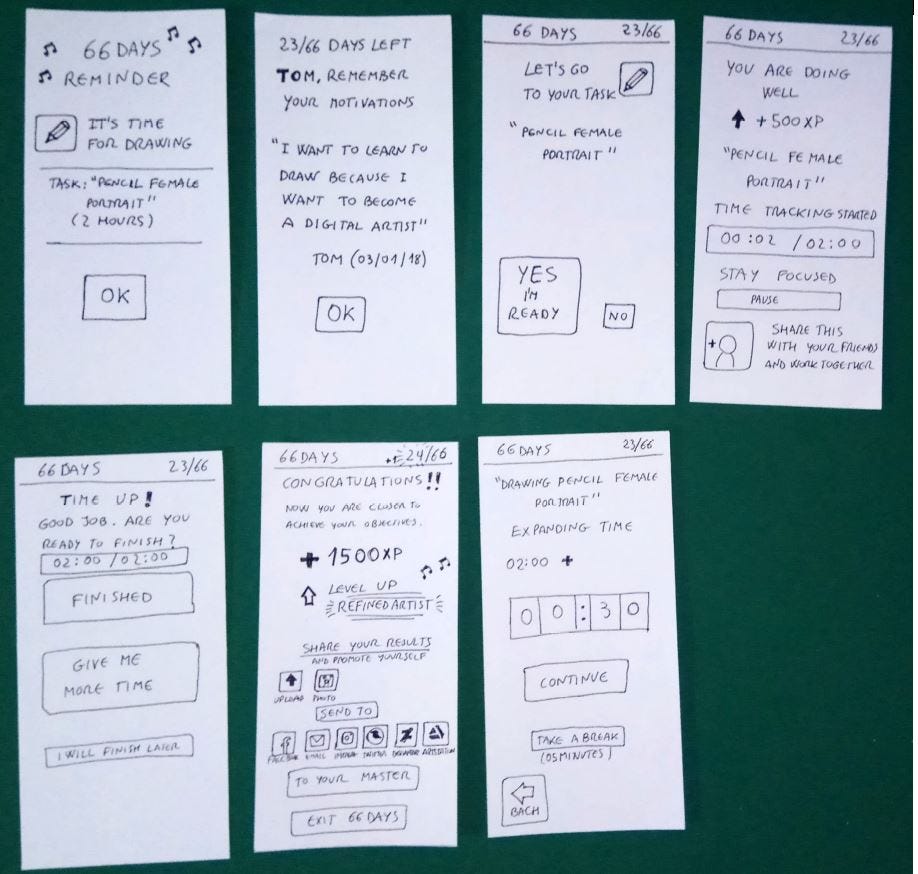 66 DAYS
REMINDER
IT'S TIME
FOR DRAWING
TASK: "PENCIL FEMALE
PORTRAIT"
(2 HOURS)
OK
23/66 DAYS LEFT
TOM, REMEMBER
YOUR MOTIVATIONS
"I WANT TO LEARN TO
DRAW BECAUSE I
WANT TO BECOME
A DIGITAL ARTIST"
TOM (03/01/18)
OK
66 DAYS 23/66
LET'S GO
TO YOUR TASK
"PENCIL FEMALE
PORTRAIT"
YES
I'M
READY
NO
66 DAYS 23/66
YOU ARE DOING
WELL
+500XP
"PENCIL FEMALE
PORTRAIT"
TIME TRACKING STARTED
00:02 /02:00
STAY FOCUSED
PAUSE
+
SHARE THIS
WITH YOUR FRIENDS
AND WORK TOGETHER
66 DAYS 23/66
TIME UP!
GOOD JOB. ARE YOU
READY TO FINISH?
02:00 /02:00
FINISHED
GIVE ME
MORE TIME
I WILL FINISH LATER
66 DAYS +1 24/66
CONGRATULATIONS!!
NOW YOU ARE CLOSER TO
ACHIEVE YOUR OBJECTIVES.
+ 1500XP
LEVEL UP
REFINED ARTIST
SHARE YOUR RESULTS
AND PROMOTE YOURSELF
UPLOAD PHOTO
SEND TO
EMAIL TWITTER
TO YOUR MASTER
EXIT 66 DAYS
66 DAYS 23/66
"DRAWING PENCIL FEMALE
PORTRAIT"
EXPANDING TIME
02:00 +
00:30
CONTINUE
TAKE A BREAK
(05 MINUTES)
BACH